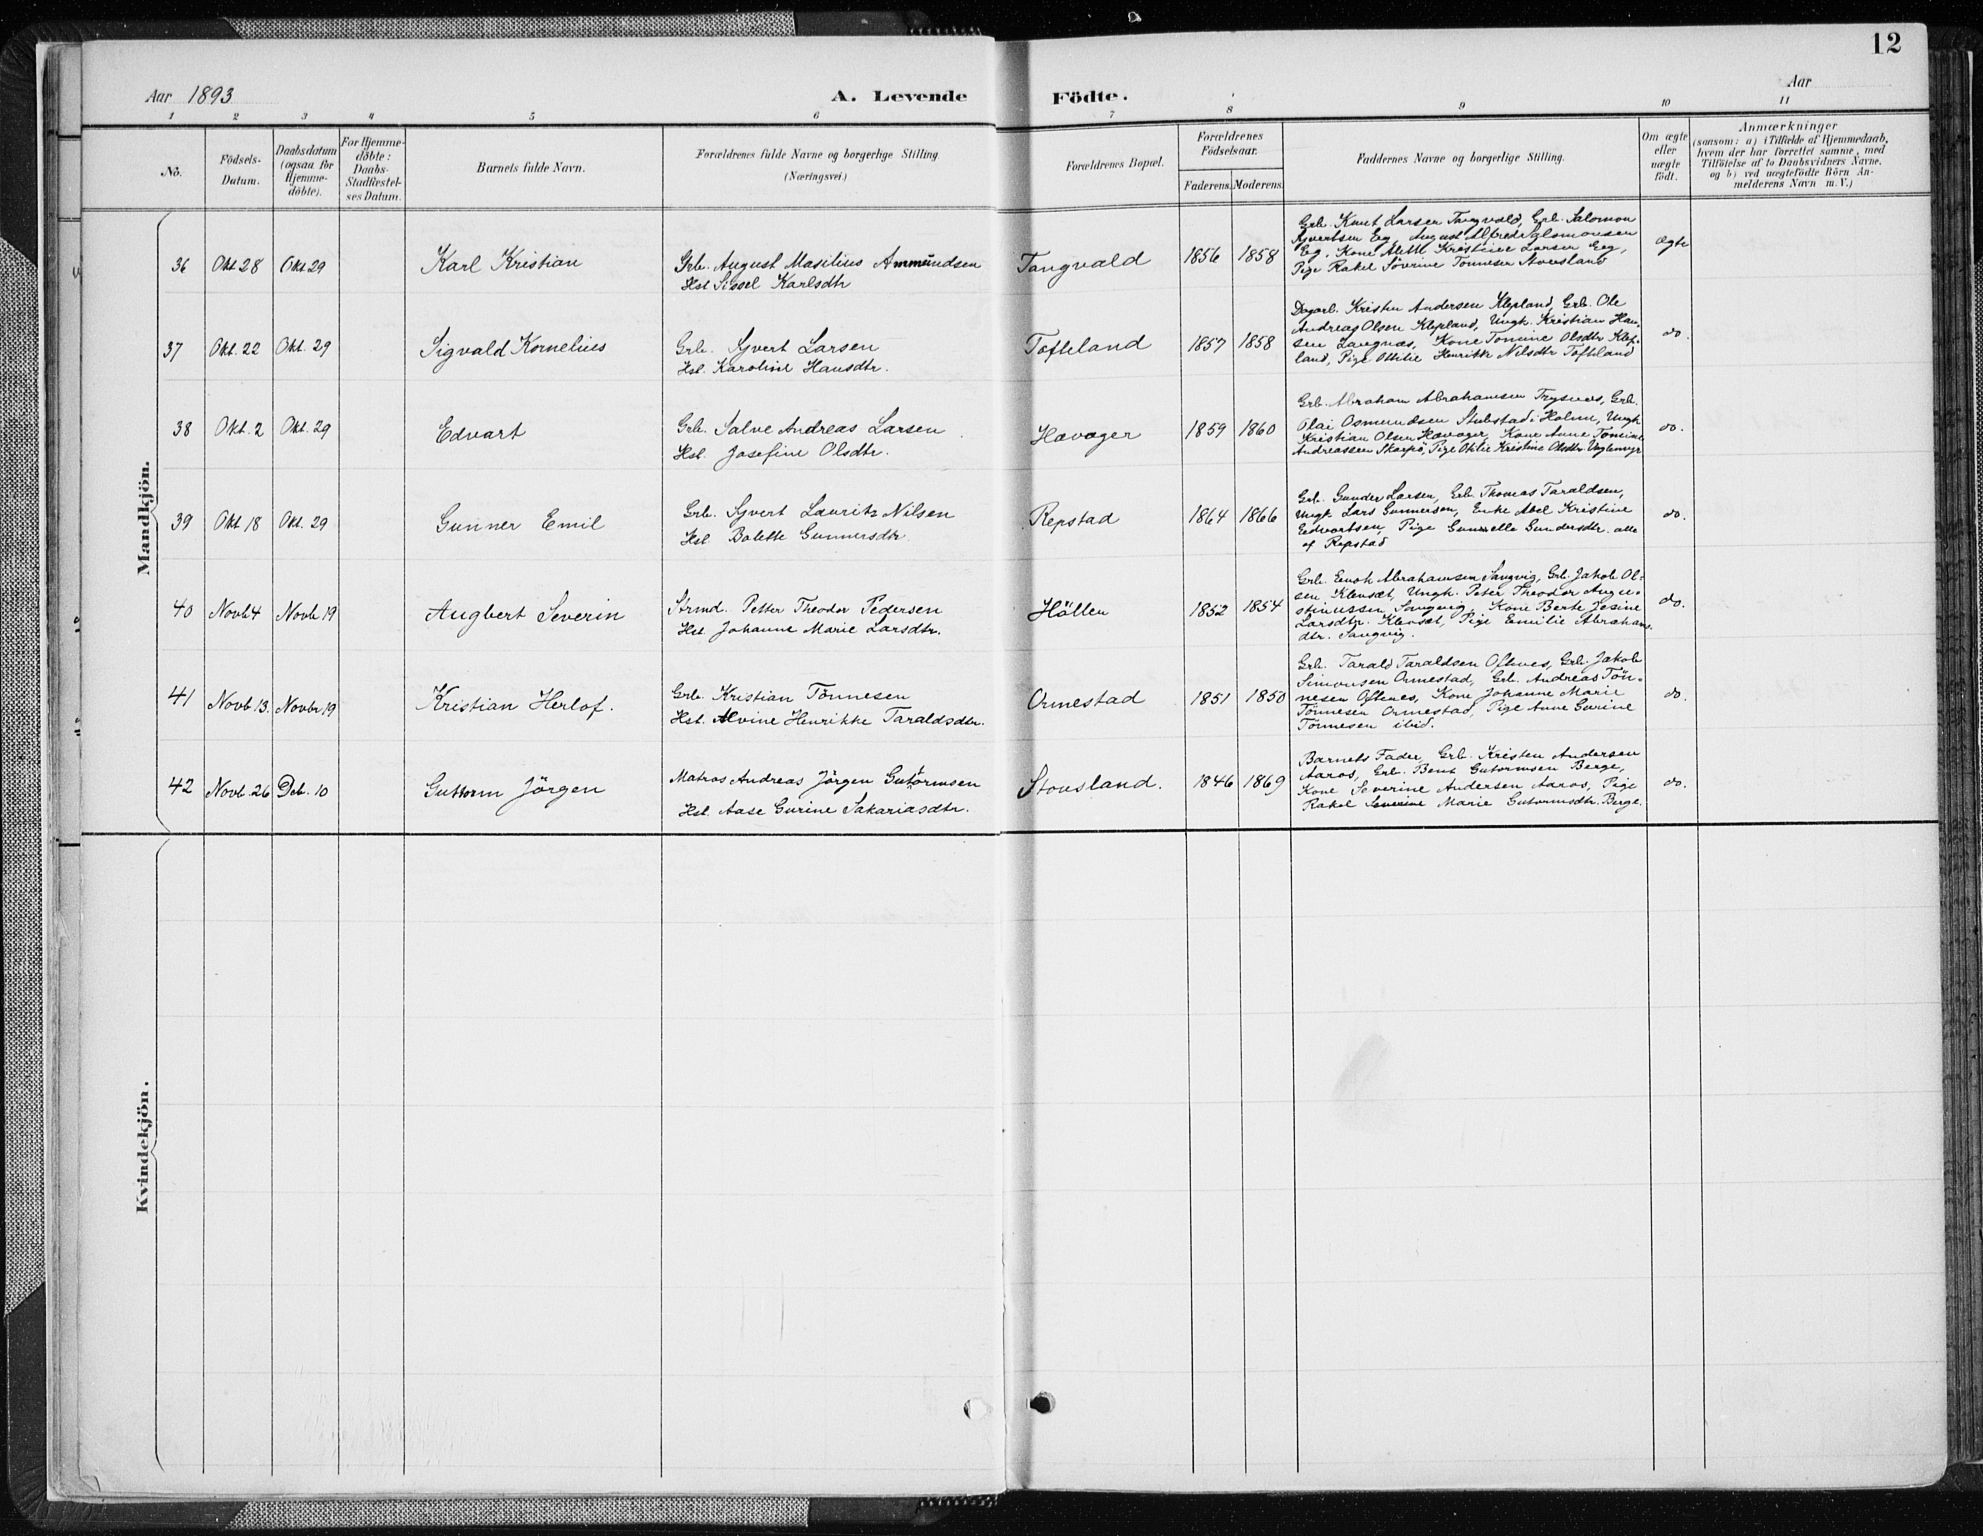 12
Aar 1893
A. Levende Födte.
Aar
1 2 3 4 5 6 7 8 9 10 11
No.
Födsels-Datum.
Daabsdatum (ogsaa for Hjemmedöbte).
For Hjemmedöbte: Daabs-Stadfestelses Datum.
Barnets fulde Navn.
Forældrenes fulde Navne og borgerlige Stilling.
(Næringsvei.)
Forældrenes Bopæl.
Forældrenes Fødselsaar.
Faderens. Moderens.
Faddernes Navne og borgerlige Stilling.
Om ægte eller uægte födt.
Anmærkninger
(saasom: a) i Tilfælde af Hjemmedaab,
hvem der har forrettet samme, med
Tilföielse af to Daabsvidners Navne.
og b) ved uægtefödte Börn Anmelderens Navn m. V.)
Mandkjön.
36 Okt 28 Okt 29 Karl Kristian
Grb. August Masilius Ammundsen
Hst Sissel Karlsdtr
Tangvald 1856 1858
Grb. Knut Larsen Tangvald, Grb. Salomon
Syvertsen Eeg, August Alfred Salomonsen
Eeg, Kone Alette Kristine Larsen Eeg,
Pige Rakel Söverine Tönnesen Aversland
ægte
37 Okt. 22 Okt. 29 Sigvald Kornelius
Grb. Syvert Larsen
Hst. Karoline Hansdtr.
Tofteland 1857 1858
Dagarb. Kristen Andersen Klepland, Grb. Ole
Andreas Olsen Klepland, Ungk. Kristian Han-
sen Langnæs, Kone Tomine Olsdtr Klep-
land, Pige Ottilie Henrikke Nilsdtr Tofteland
do.
38 Okt. 2 Okt. 29 Edvart
Grb. Salve Andreas Larsen
Hst. Josefine Olsdtr.
Hævager 1859 1860
Grb. Abraham Abrahamsen Trysnes, Grb.
Olai Osmundsen Stubstad i Holme, Ungk
Kristian Olsen Hævager, Kone Anne Tomine
Andreassen Skarpö, Pige Otilie Kristine Olsdtr. Uglemyr
do.
39 Okt 18 Okt. 29 Gunner Emil
Grb. Syvert Lauritz Nilsen
Hst. Bolette Gunnersdtr
Repstad 1864 1866
Grb. Gunder Larsen, Grb. Thomas Taraldsen,
Ungk Lars Gunnersen, Enke Abel Kristine
Edvartsen, Pige Gunnelle Gundersdtr. alle
af Repstad
do.
40 Novb 4 Novb 19 Augbert Severin
Strmd. Petter Theodor Pedersen
Hst. Johanne Marie Larsdtr.
Höllen 1852 1854
Grb. Enok Abrahamsen Sangvig, Grb. Jakob Ol-
sen Klevset, Ungk. Peter Theodor Augu-
stinussen, Sangvig, Kone Berte Jesine
Larsdtr. Klevset, Pige Emilie Abrahams-
dtr. Sangvig.
do.
41 Novb 13. Novbr 19 Kristian Herlof.
Grb. Kristian Tönnesen
Hst. Alvine Henrikke Taraldsdtr.
Ormestad 1851 1850
Grb. Tarald Taraldsen Oftenes, Grb. Jakob
Simonsen Ormestad, Grb. Andreas Tön-
nesen Oftenes, Kone Johanne Marie
Tönnesen Ormestad, Pige Anne Gurine
Tönnesen ibid.
do.
42 Novb. 26 Deb. 10 Guttorm Jörgen
Matros Andreas Jörgen Gutormsen
Hst. Aase Gurine Sakariasdtr.
Stousland. 1846 1869
Barnets Fader, Grb. Kristen Andersen
Aaros, Grb. Bent Gutormsen Berge,
Kone Severine Andersen Aaros, Pige
Rakel Severine Marie Gutormsdtr. Berge.
do.
Kvindekjön.